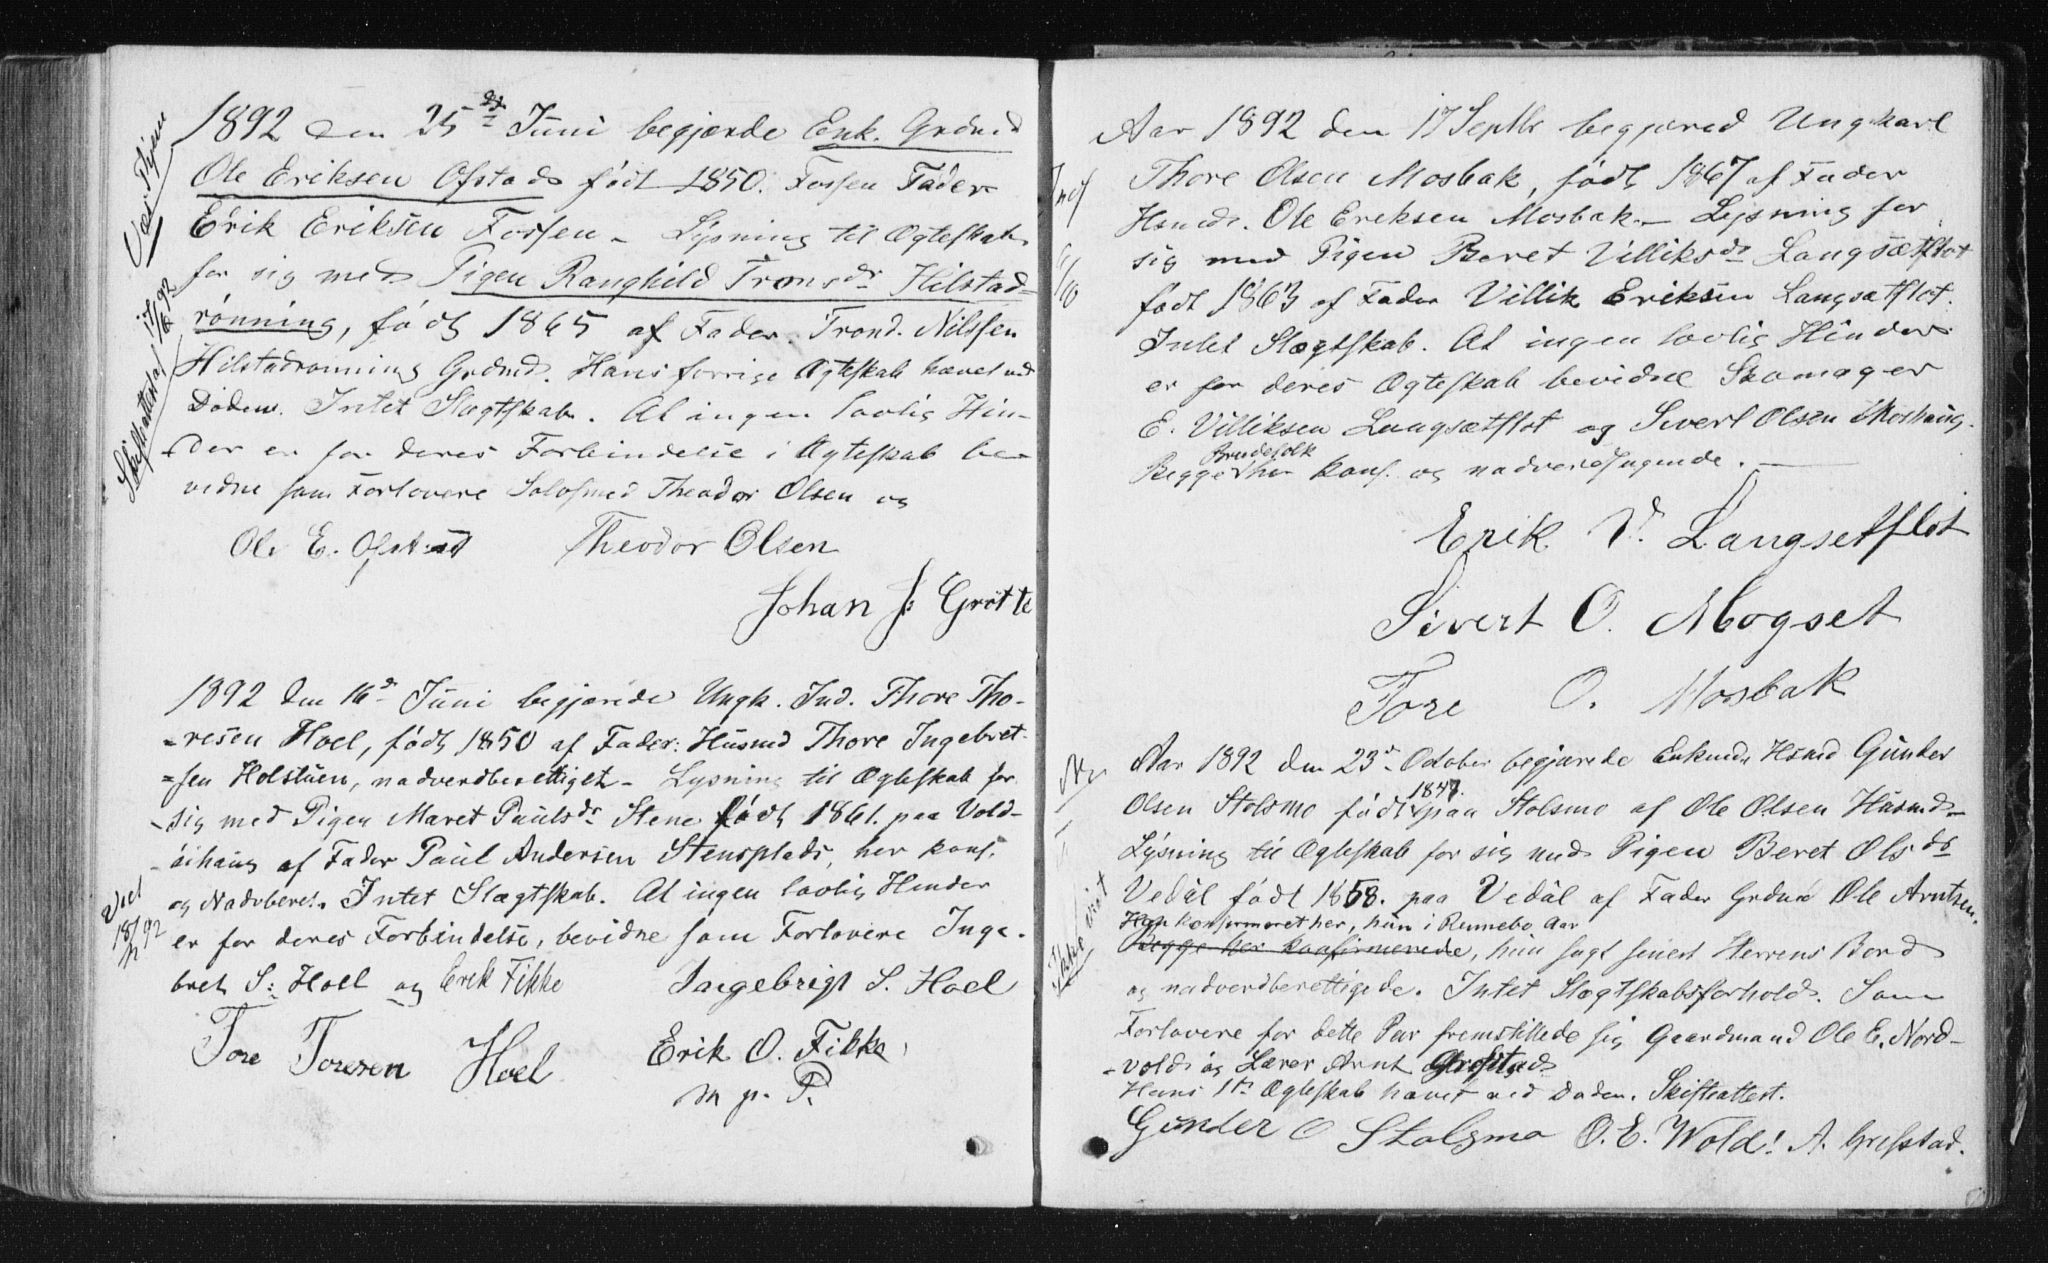 1892 den 25de Juni begjærde Enk. Grdmd
Ole Eriksen Ofstad født 1850. Fossen Fader
Erik Eriksen Fossen – Lysning til Ægteskab
for sig med Pigen Ranghild Tronsdr Hilstad-
rønning, født 1865 af Fader. Trond. Nilssen
Hilstadrønning Grdmd. Hans forrige Ægteskab hævet ved
Døden. Intet Slægtskab. At ingen lovlig Hin-
der er for deres Forbindelse i Ægteskab be-
vidne som Forlovere Theodor Olsen og
Ole E. Ofstad Theodor Olsen
Johan J. Grøtte
Skifteattest af 17/6 92
1892 den 16de Juni begjærede Ungk. Ind. Thore Tho-
-resen Hoel, født 1850 af Fader: Husmd Thore Ingebret-
-sen Holstuen, nadverdberettiget – Lysning til Ægteskab for
sig med Pigen Maret Paulsdr Stene født 1861. paa Vold-
-aihaug af Fader Paul Andersen Stensplads, her konf.
og Nadvberet. Intet Slægtskab. At ingen lovlig Hinder
er for deres Forbindelse, bevidne som Forlovere Inge-
bret S: Hoel og Erik Fikke Ingebrigt S. Hoel
Tore Toresen Hoel Erik O. Fikke
m. p. P.
Viet
18/7 92
Aar 1892 den 17 Septbr begjæred Ungkarl
Thore Olsen Mosbak, født 1867 af Fader
Husmd. Ole Ereksen Mosbak. – Lysning for
sig med Pigen Beret Villiksdr Langsætflot
født 1863 af Fader Villik Eriksen Langsætflot.
Intet Slægtskab. At ingen lovlig Hinder
er for deres Ægteskab bevidne Skomager
E. Villiksen Langsætflot og Sivert Olsen Moshaug.
Begge Brudefolk her konf. og nadverdsøgende. –
Erik V. Langsetflot
Sivert O. Mogset
Tore O. Mosbak
Aar 1892 den 23de October begjærede Enkemd. Husmd Gunder
Olsen Stolsmo født 1847. paa Stolsmo af Ole Olsen Husmd-
Lysning til Ægteskab for sig med Pigen Beret Olsdr
Vedal født 1858. paa Vedal af Fader Grdmd Ole Arntsen.
Han konfirmeret her, hun i Rennebo. Aar
Begge her konfirmerede, hun søgt senest Herrens Bord
og nadverdberettigede. Intet Slægtskabsforhold. Som
Forlovere for dette Par fremstillede sig Gaardmand Ole E. Nord-
-vold og Lærer Arnt Grefstad.
Hans 1ste Ægteskab hævet ved Døden. Skifteattest.
Gunder O Stolsmo O. E. Wold! A. Grefstad.
Ikke viet